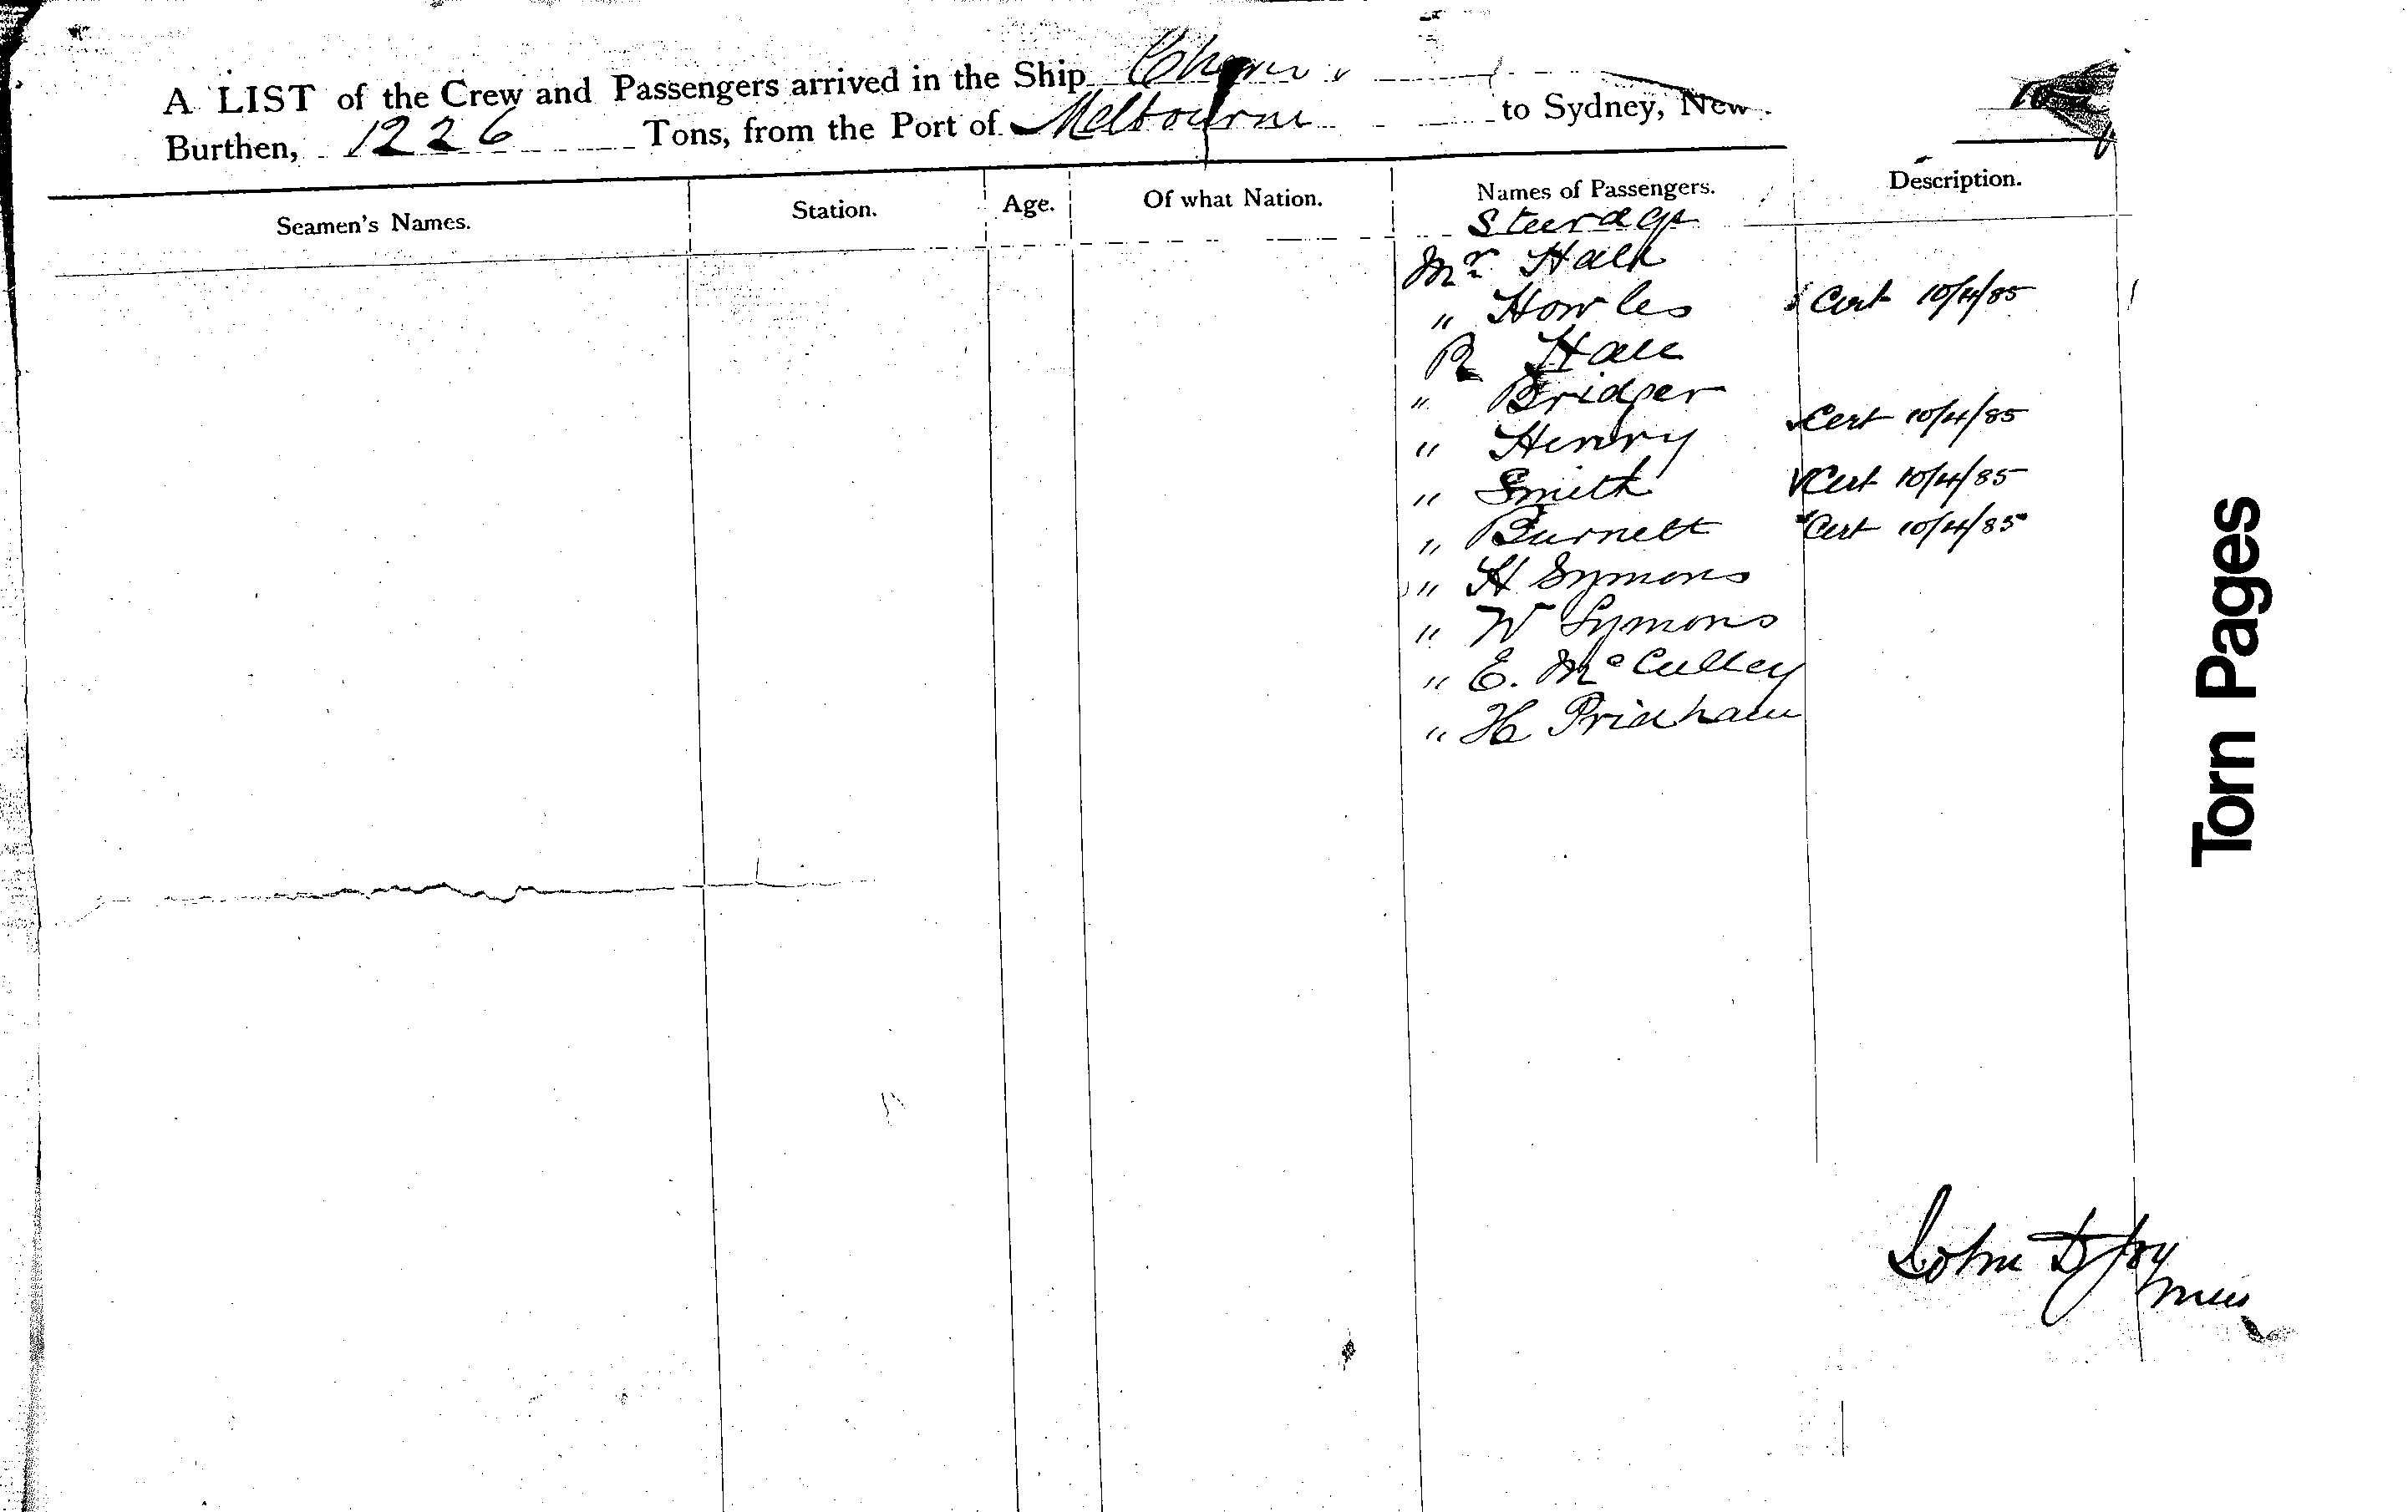 A LIST of the Crew and Passengers arrived in the Ship
Burthen, 1226 Tons, from the Port of Melbourne to Sydney, New
Seamen's Names. Station. Age. Of what Nation. Names of Passengers. Description.
Steerage
Mr Hall
" Howles Cert 10/4/85
R Hall
" Bridger
" Henry Cert 10/4/85
" Smith Cert 10/4/85
" Burnett Cert 10/4/85
" H Symons
" W Symons
" E. McCulley
" H Pridham
John
Torn Pages